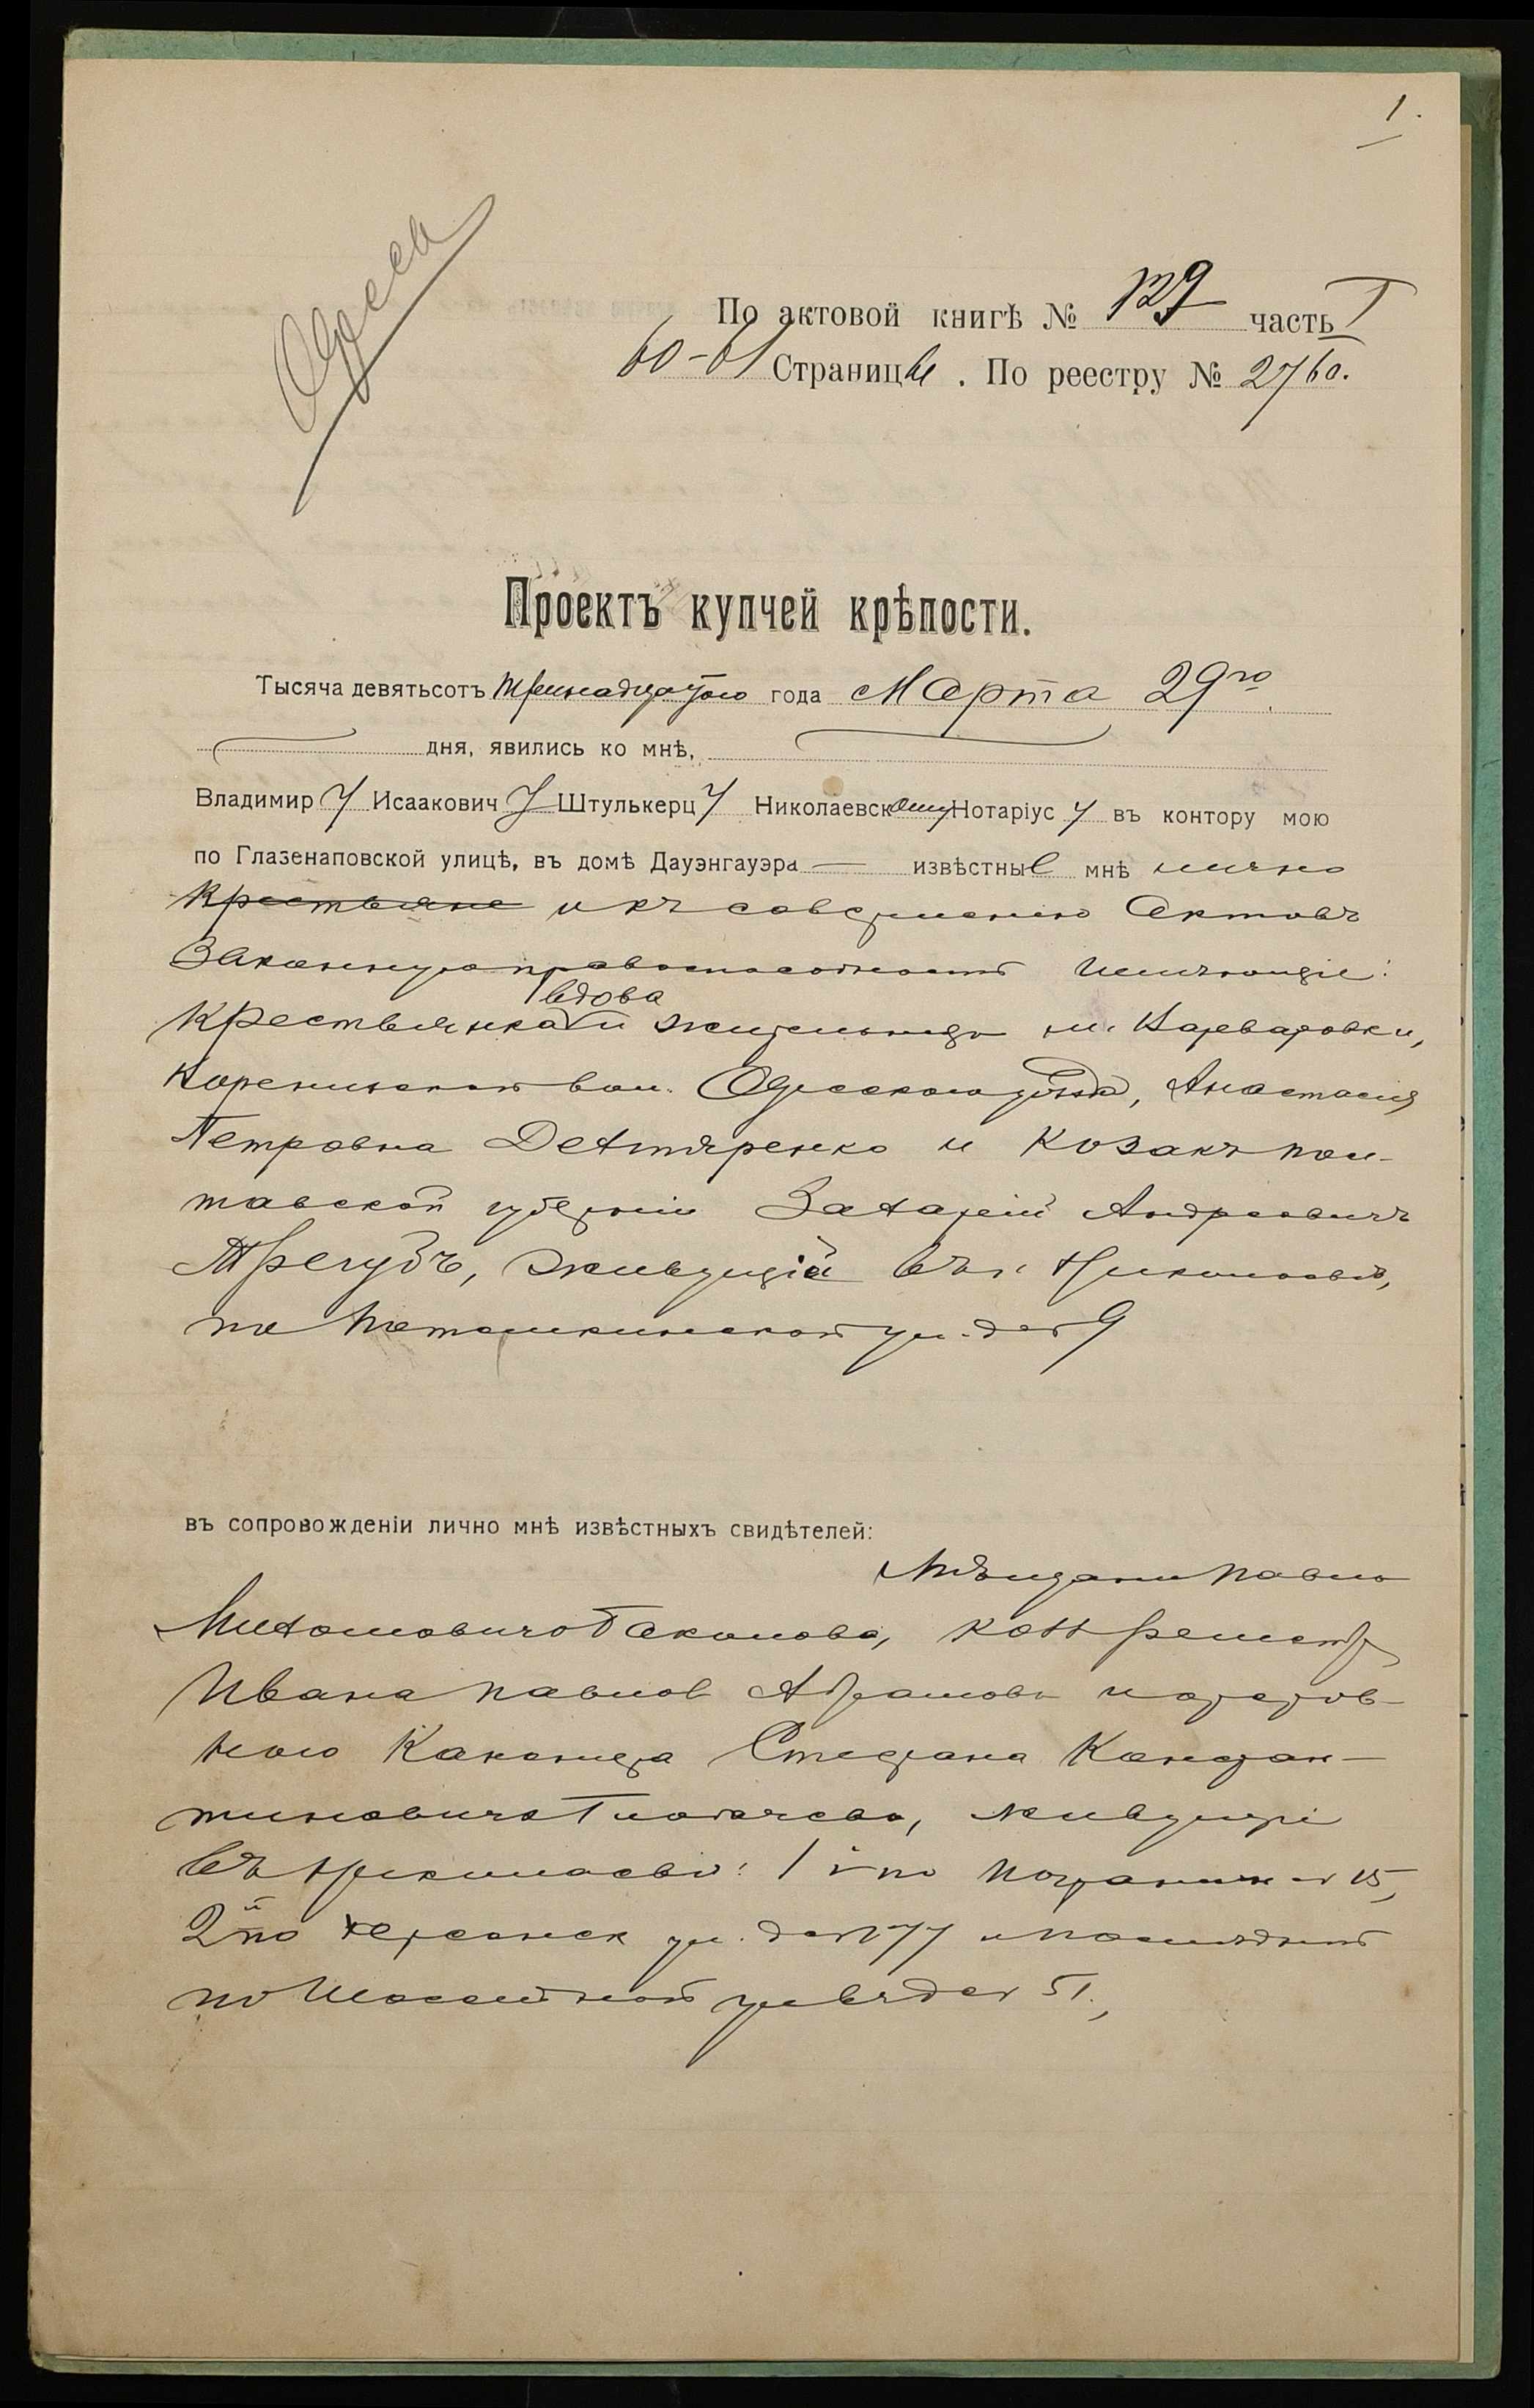 1.
Одесса
По актовой книгѣ № 129 часть I
60-61 Страницы. По реестру № 2760.
Проектъ купчей крѣпости.
Тысяча девятьсотъ тринадцатого года Марта 29го
дня, явились ко мнѣ,
Владимиру Исааковичу Штулькерцу Николаевскому Нотаріусу въ контору мою
по Глазенаповской улицѣ, въ домѣ Дауэнгауэра извѣстные мнѣ лично
Крестьяне и къ совершенію актовъ
законную правоспособность имѣющіе:
вдова
Крестьянка и жительница м. Варваровки,
Корениской вол. Одесского уѣзда, Анастасия
Петровна Дехтяренко и Козакъ пол-
тавской губерніи Захарій Андреевичъ
Трегубъ, живущій въ г. Николаевѣ,
по Потемкинской ул. д № 9
въ сопровожденіи лично мнѣ извѣстныхъ свидѣтелей:
Мѣщанина Павла
Михайловича, кол регистр
Ивана Павлов Абрамова и
Стефана Констан-
тиновича, живущіе
въ Николаевѣ: 1й по Погранич № 15,
2й по Херсонск ул. д № 77 и послѣдній
по ул въ д № 51.,